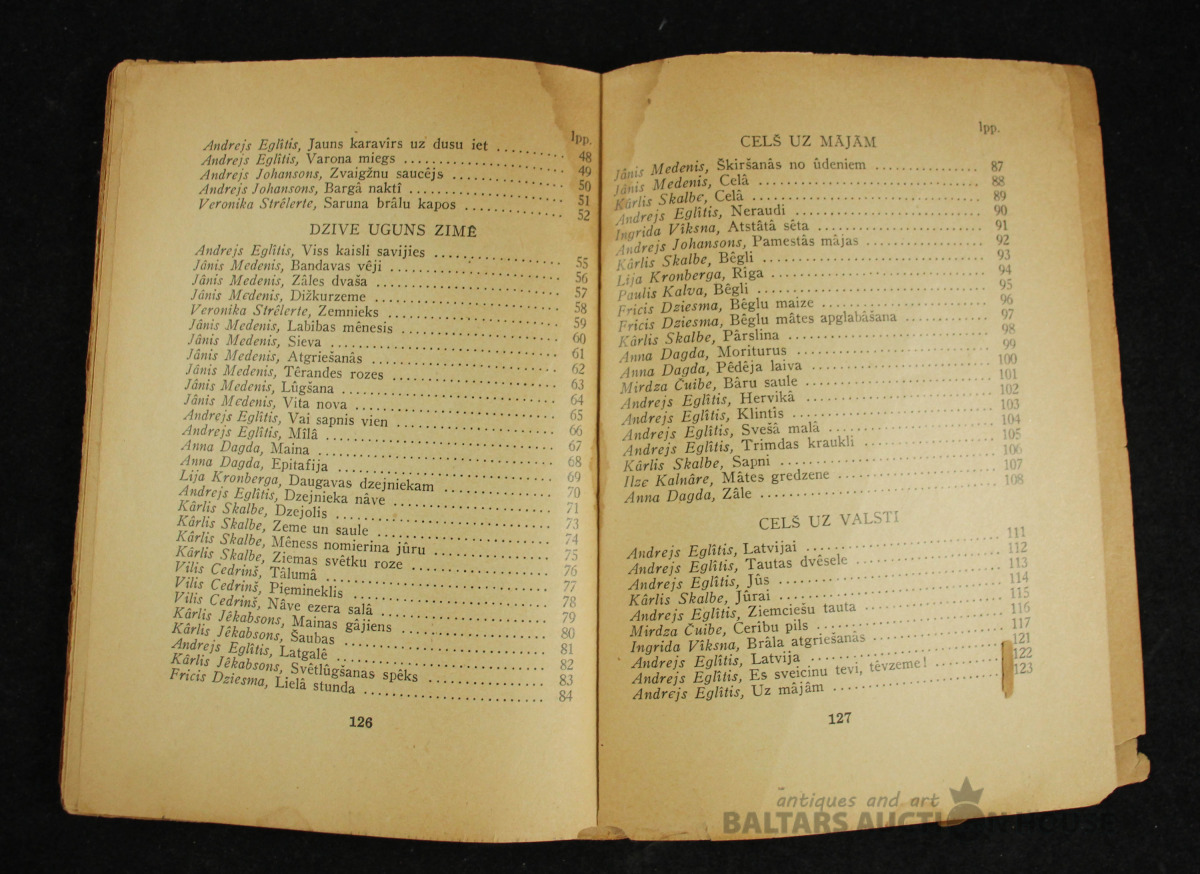 lpp.
Andrejs Eglîtis, Jauns karavîrs uz dusu iet . . . . . . . . . 48
Andrejs Eglîtis, Varona miegs . . . . . . . . . . . . . . . . . . . . 49
Andrejs Johansons, Zvaigžnu saucējs . . . . . . . . . . . . . . 50
Andrejs Johansons, Bargâ naktî . . . . . . . . . . . . . . . . . . 51
Veronika Strêlerte, Saruna brâlu kapos . . . . . . . . . . . . 52
DZIVE UGUNS ZIMĒ
Andrejs Eglîtis, Viss kaisli savijies . . . . . . . . . . . . . . . . 55
Jânis Medenis, Bandavas vēji . . . . . . . . . . . . . . . . . . . . 56
Jânis Medenis, Zâles dvaša . . . . . . . . . . . . . . . . . . . . . 57
Jânis Medenis, Dižkurzeme . . . . . . . . . . . . . . . . . . . . . 58
Veronika Strêlerte, Zemnieks . . . . . . . . . . . . . . . . . . . . 59
Jânis Medenis, Labîbas mēnesis . . . . . . . . . . . . . . . . . . 60
Jânis Medenis, Sieva . . . . . . . . . . . . . . . . . . . . . . . . . . 61
Jânis Medenis, Atgriešanâs . . . . . . . . . . . . . . . . . . . . . 62
Jânis Medenis, Têrandes rozes . . . . . . . . . . . . . . . . . . . 63
Jânis Medenis, Lûgšana . . . . . . . . . . . . . . . . . . . . . . . . 64
Jânis Medenis, Vita nova . . . . . . . . . . . . . . . . . . . . . . . 65
Andrejs Eglîtis, Vai sapnis vien . . . . . . . . . . . . . . . . . . . 66
Andrejs Eglîtis, Mîlâ . . . . . . . . . . . . . . . . . . . . . . . . . . . 67
Anna Dagda, Maina . . . . . . . . . . . . . . . . . . . . . . . . . . . 68
Anna Dagda, Epitafija . . . . . . . . . . . . . . . . . . . . . . . . . . 69
Lija Kronberga, Daugavas dzejniekam . . . . . . . . . . . . . 70
Andrejs Eglîtis, Dzejnieka nâve . . . . . . . . . . . . . . . . . . . 71
Kârlis Skalbe, Dzejolis . . . . . . . . . . . . . . . . . . . . . . . . . 73
Kârlis Skalbe, Zeme un saule . . . . . . . . . . . . . . . . . . . . 74
Kârlis Skalbe, Mêness nomierina jûru . . . . . . . . . . . . . . 75
Kârlis Skalbe, Ziemas svêtku roze . . . . . . . . . . . . . . . . . 76
Vilis Cedrinš, Tâlumâ . . . . . . . . . . . . . . . . . . . . . . . . . . 77
Vilis Cedrinš, Piemineklis . . . . . . . . . . . . . . . . . . . . . . . 78
Vilis Cedrinš, Nâve ezera salâ . . . . . . . . . . . . . . . . . . . 79
Kârlis Jêkabsons, Mainas gâjiens . . . . . . . . . . . . . . . . . 80
Kârlis Jêkabsons, Šaubas . . . . . . . . . . . . . . . . . . . . . . . 81
Andrejs Eglîtis, Latgalê . . . . . . . . . . . . . . . . . . . . . . . . . 82
Kârlis Jêkabsons, Svêtlûgšanas spêks . . . . . . . . . . . . . 83
Fricis Dziesma, Lielâ stunda . . . . . . . . . . . . . . . . . . . . . 84
126
lpp.
CELŠ UZ MÂJÂM
Jânis Medenis, Škiršanâs no ûdeniem . . . . . . . . . . . . . . 87
Jânis Medenis, Celâ . . . . . . . . . . . . . . . . . . . . . . . . . . . 88
Kârlis Skalbe, Celâ . . . . . . . . . . . . . . . . . . . . . . . . . . . . 89
Andrejs Eglîtis, Neraudi . . . . . . . . . . . . . . . . . . . . . . . . . 90
Ingrida Vîksna, Atstâtâ sêta . . . . . . . . . . . . . . . . . . . . . . 91
Andrejs Johansons, Pamestâs mâjas . . . . . . . . . . . . . . 92
Kârlis Skalbe, Bêgli . . . . . . . . . . . . . . . . . . . . . . . . . . . . 93
Lija Kronberga, Rîga . . . . . . . . . . . . . . . . . . . . . . . . . . . 94
Paulis Kalva, Bêgli . . . . . . . . . . . . . . . . . . . . . . . . . . . . 95
Fricis Dziesma, Bêglu maize . . . . . . . . . . . . . . . . . . . . . 96
Fricis Dziesma, Bêglu mâtes apglabâšana . . . . . . . . . . 97
Kârlis Skalbe, Pârslina . . . . . . . . . . . . . . . . . . . . . . . . . 98
Anna Dagda, Moriturus . . . . . . . . . . . . . . . . . . . . . . . . . 99
Anna Dagda, Pêdêja laiva . . . . . . . . . . . . . . . . . . . . . . . 100
Mirdza Čuibe, Bâru saule . . . . . . . . . . . . . . . . . . . . . . . 101
Andrejs Eglîtis, Hervikâ . . . . . . . . . . . . . . . . . . . . . . . . . 102
Andrejs Eglîtis, Klintîs . . . . . . . . . . . . . . . . . . . . . . . . . . 103
Andrejs Eglîtis, Svešâ malâ . . . . . . . . . . . . . . . . . . . . . . 104
Andrejs Eglîtis, Trimdas kraukli . . . . . . . . . . . . . . . . . . . 105
Kârlis Skalbe, Sapni . . . . . . . . . . . . . . . . . . . . . . . . . . . 106
Ilze Kalnâre, Mâtes gredzene . . . . . . . . . . . . . . . . . . . . 107
Anna Dagda, Zâle . . . . . . . . . . . . . . . . . . . . . . . . . . . . . 108
CELŠ UZ VALSTI
Andrejs Eglîtis, Latvijai . . . . . . . . . . . . . . . . . . . . . . . . . 111
Andrejs Eglîtis, Tautas dvêsele . . . . . . . . . . . . . . . . . . . 112
Andrejs Eglîtis, Jûs . . . . . . . . . . . . . . . . . . . . . . . . . . . . 113
Kârlis Skalbe, Jûrai . . . . . . . . . . . . . . . . . . . . . . . . . . . . 114
Andrejs Eglîtis, Ziemciešu tauta . . . . . . . . . . . . . . . . . . . 115
Mirdza Čuibe, Cerîbu pils . . . . . . . . . . . . . . . . . . . . . . . . 116
Ingrida Vîksna, Brâla atgriešanâs . . . . . . . . . . . . . . . . . . 117
Andrejs Eglîtis, Latvija . . . . . . . . . . . . . . . . . . . . . . . . . . 121
Andrejs Eglîtis, Es sveicinu tevi, têvzeme! . . . . . . . . . . . 122
Andrejs Eglîtis, Uz mâjâm . . . . . . . . . . . . . . . . . . . . . . . 123
127
antiques and art
BALTARS AUCTION HOUSE